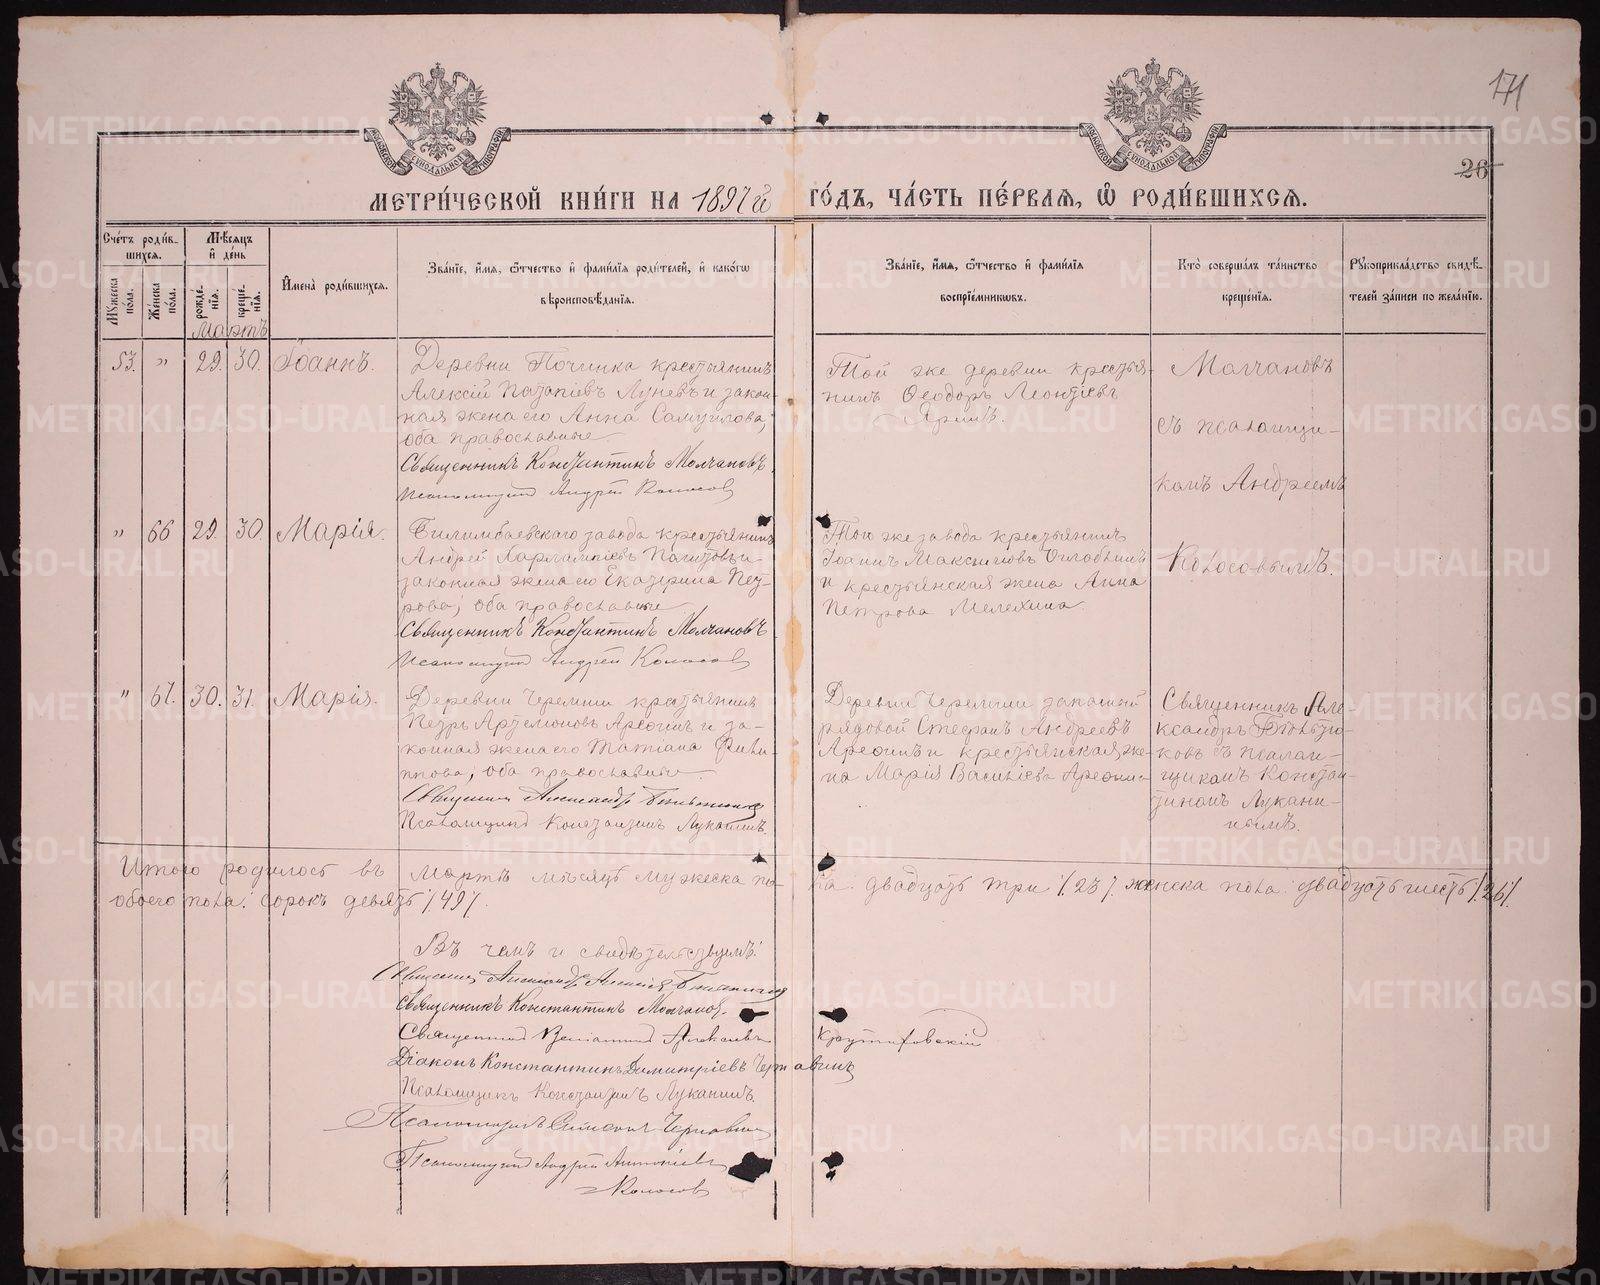 171
26
МЕТРИ́ЧЕСКОЙ КНИ́ГИ НА 1897й ГО́ДЪ, ЧА́СТЬ ПЕ́РВАЯ, Ѽ РОДИ́ВШИХСЯ.
Сче́тъ роди́вшихся.
Му́жеска по́ла.
Же́нска по́ла.
Мѣ́сяцъ и де́нь
рожде́нія.
креще́нія.
Имена̀ роди́вшихся.
Зва́ніе, и́мя, ѻ́тчество и фами́лія роди́телей, и како́гѡ
вѣроисповѣ́данія.
Зва́ніе, и́мя, ѻ́тчество и фами́лія
воспріе́мникѡвъ.
Кто̀ соверша́лъ та́инство
креще́нія.
Рꙋкоприкла́дство свидѣ́телей за́писи по жела́нію.
Мартъ
53. " 29. 30. Іоаннъ.
Деревни Починка крестьянинъ
Алексій Патапіевъ Луневъ и закон-
ная жена его Анна Самуилова;
оба православные.
Священникъ Константинъ Молчановъ.
Псаломщикъ Андрей Колосов
Той же деревни крестья-
нинъ Ѳеодоръ Леонтіевъ
Молчановъ
съ псаломщи-
комъ Андреемъ
Колосовымъ.
" 66 29. 30. Марія.
Билимбаевскаго завода крестьянинъ
Андрей Харлампіевъ и
законная жена его Екатерина Пет-
рова; оба православные
Священникъ Константинъ Молчановъ
Псаломщик Андрей Колосов
Того же завода крестьянинъ
Іоаннъ Максимовъ
и крестьянская жена Анна
Петрова Мелехина
" 67. 30. 31. Марія.
Деревни Черемши крестьянинъ
Петръ Артемоновъ Арефинъ и за-
конная жена его Татіана Филип-
пова; оба православные.
Псаломщикъ Константинъ Луканинъ.
Деревни Черемши запасный
рядовой Стефанъ Андреевъ
Арефинъ и крестьянская же-
на Марія Васильева Арефина
Священникъ Але-
ксандръ
ковъ съ псалом-
щикомъ Констан-
тиномъ Лукани-
нымъ.
Итого родилось въ Мартѣ мѣсяцѣ мужеска по-ла: двадцать три /23/. женска пола: двадцать шесть /26/.
обоего пола: сорокъ девять /49/.
Въ чемъ и свидѣтельствуемъ:
Священникъ Константинъ Молчановъ.
Діаконъ Константинъ Димитріевъ Чернавинъ
Псаломщикъ Константинъ Луканинъ.
Псаломщикъ Симеонъ Чернавин
Псаломщикъ Андрей Антоніевъ
Колосовъ
METRIKI.GASO-URAL.RU